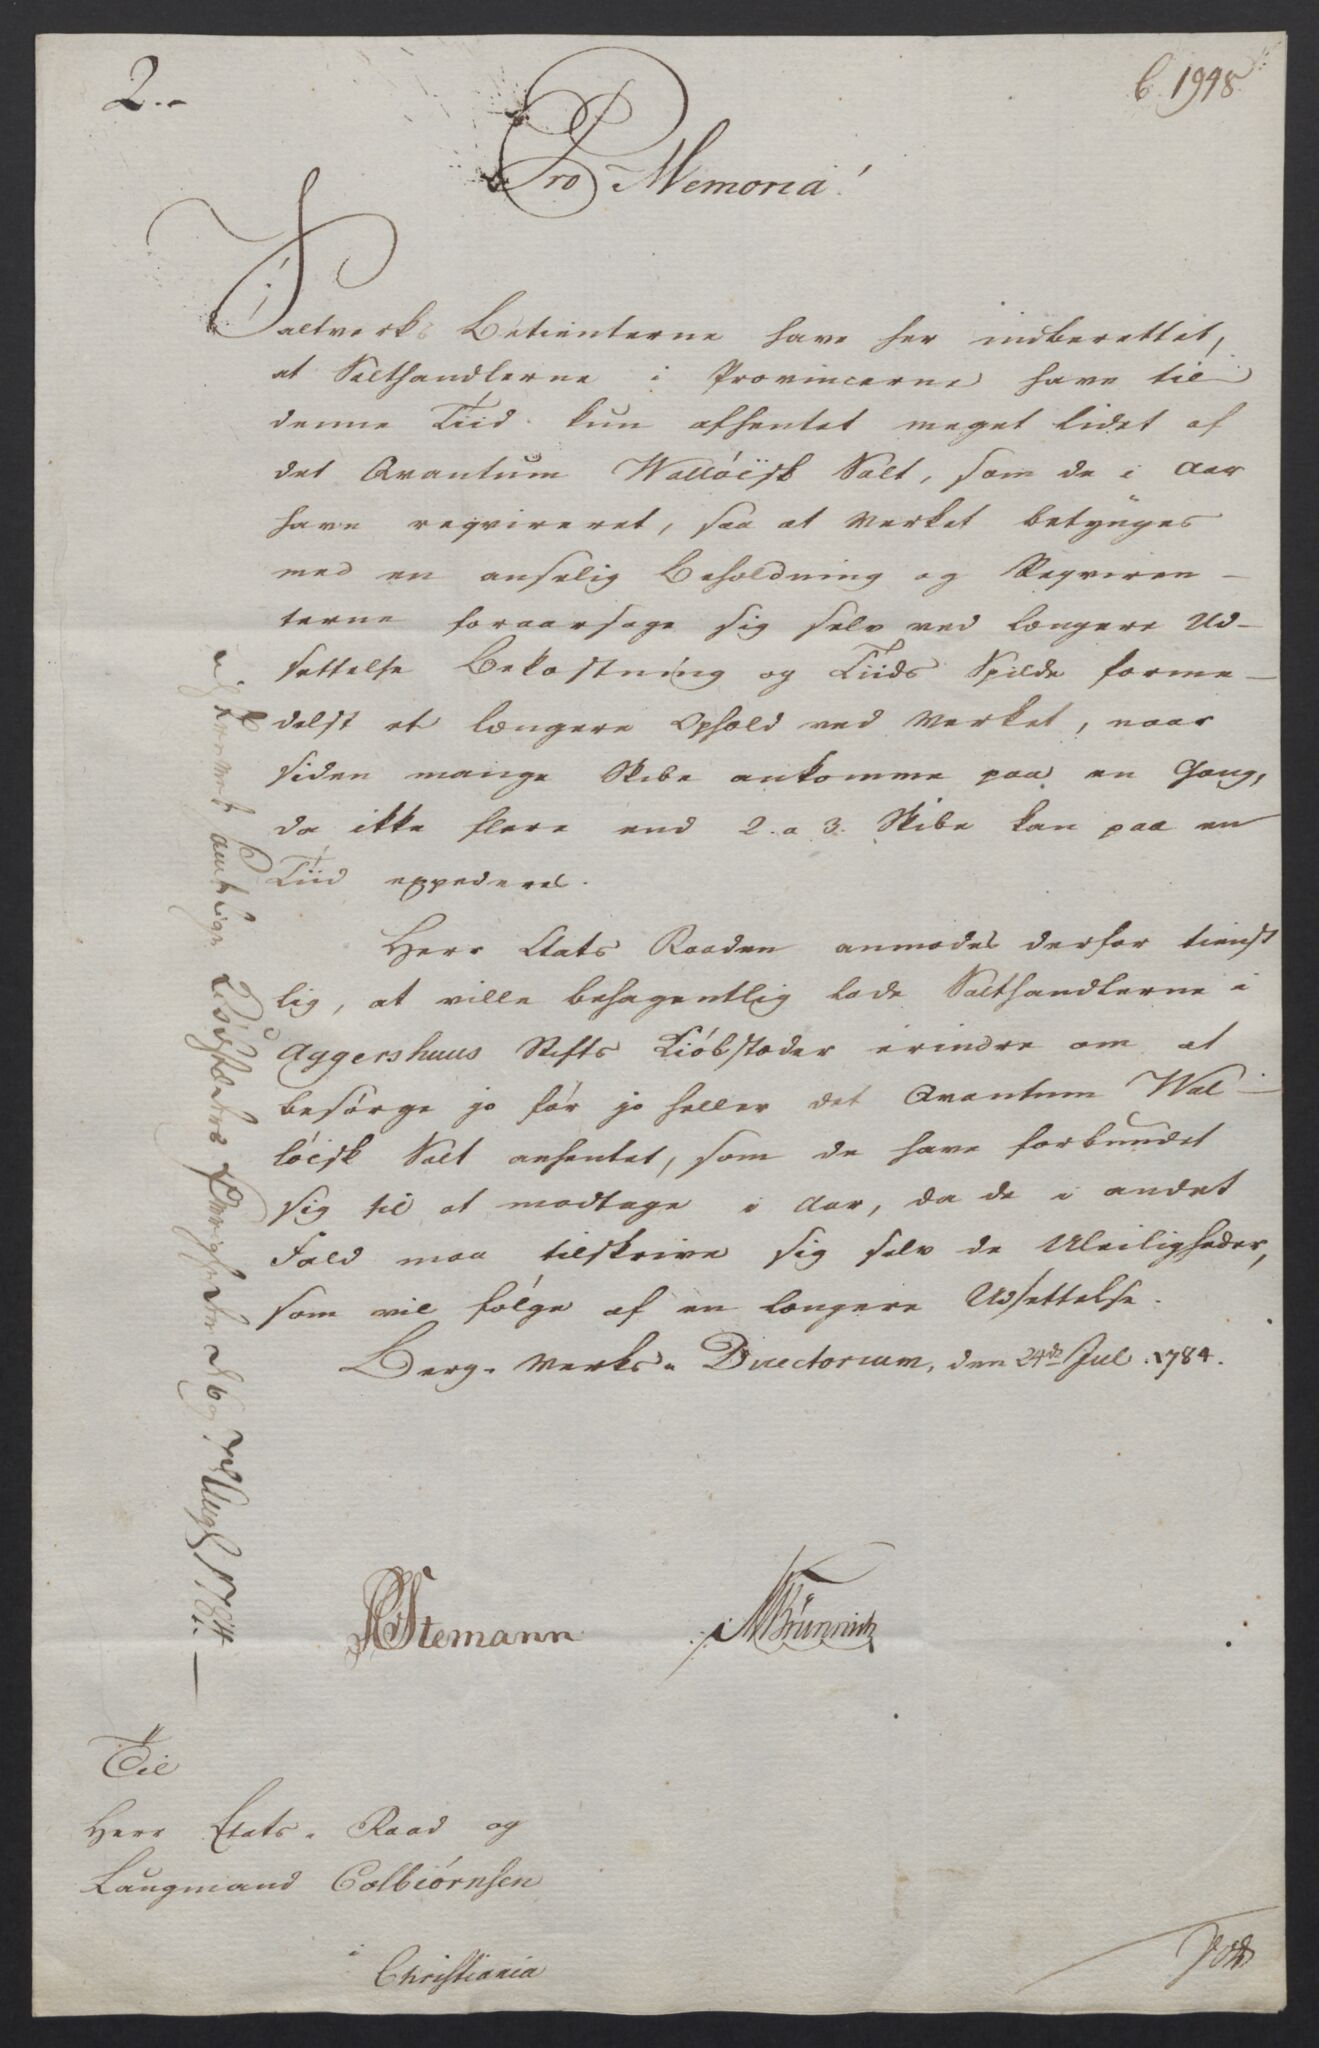 2.
6. 1948
Pro Memoria!
Saltverks Betienterne have her indberettet,
at Salthandlerne i Provincerne have til
denne Tiid kun afhentet meget lidet af
det Qvantum Wallöeisk Salt, som de i Aar
have reqvireret, saa at Verket betynges
med en anselig Beholdning og Reqviren-
terne foraarsage sig selv ved længere Ud-
settelse Bekostning og Tiids Spilde forme-
delst et længere Ophold ved Verket, naar
siden mange Skibe ankomme paa en Gang,
da ikke flere end 2. a 3. Skibe kan paa en
Tiid expederes.
Herr Etats Raaden anmodes derfor tienst
lig, at ville behagentlig lade Salthandlerne i
Aggershuus Stifts Kiöbstæder erindre om at
besörge jo för jo heller det Qvantum Wal-
löeisk Salt anhentet, som de have forbundet
sig til at modtage i Aar, da de i andet
Fald maa tilskrive sig selv de Uleiligheder,
som vil fölge af en længere Udsettelse.
Berg-Verks-Directorium, den 24de Jul. 1784.
Stemann
MBrünnich
Til
Herr Etats-Raad og
Laugmand Colbiörnsen
i
Christiania
Augs 1784.